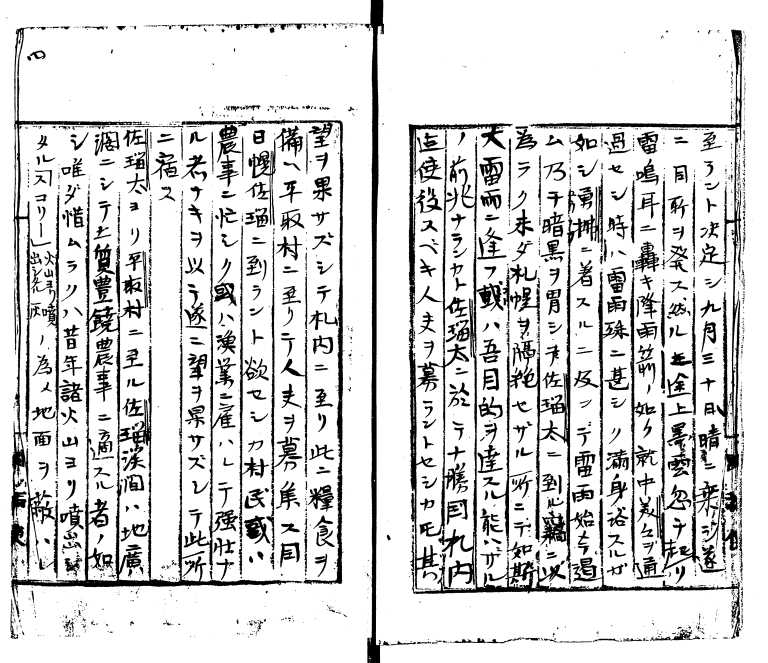 至ラント決定シ九月三十日晴ニ乗ジ遂
ニ同所ヲ発ス然ルニ途上黒雲忽チ起リ
雷鳴耳ニ轟キ降雨箭ノ如ク就中美々ヲ通
過セシ時ハ雷雨殊ニ甚シク満身浴スルガ
如シ勇払ニ着スルニ及ンデ雷雨始メテ遏
ム乃チ暗黒ヲ冒シテ佐瑠太ニ到ル窃ニ以
為ラク未ダ札幌ヲ隔絶セザル所ニテ如斯
大雷雨ニ逢フ或ハ吾目的ヲ達スル能ハザル
ノ前兆ナランカト佐瑠太ニ於テ十勝国札内
迄使役スベキ人夫ヲ募ラントセシカ正其
望ヲ果サズシテ札内ニ至リ此ニ糧食ヲ
備ヘ平取村ニ至リテ人夫ヲ募集ス同
日幌去瑠ニ到ラント欲セシカ村民或ハ
農事ニ忙シク或ハ漁業ニ雇ハレテ強壮ナ
ル者ナキヲ以テ遂ニ望ヲ果サズシテ此所
ニ宿ス
佐瑠太ヨリ平取村ニ至ル佐瑠渓澗ハ地広
濶ニシテ土質豊饒農事ニ適スル者ノ如
シ唯ダ惜ムラクハ昔年諸火山ヨリ噴出シ
タル「スコリー」火山ヨリ噴出シタル灰ノ為メ地面ヲ蔽ハレ
四